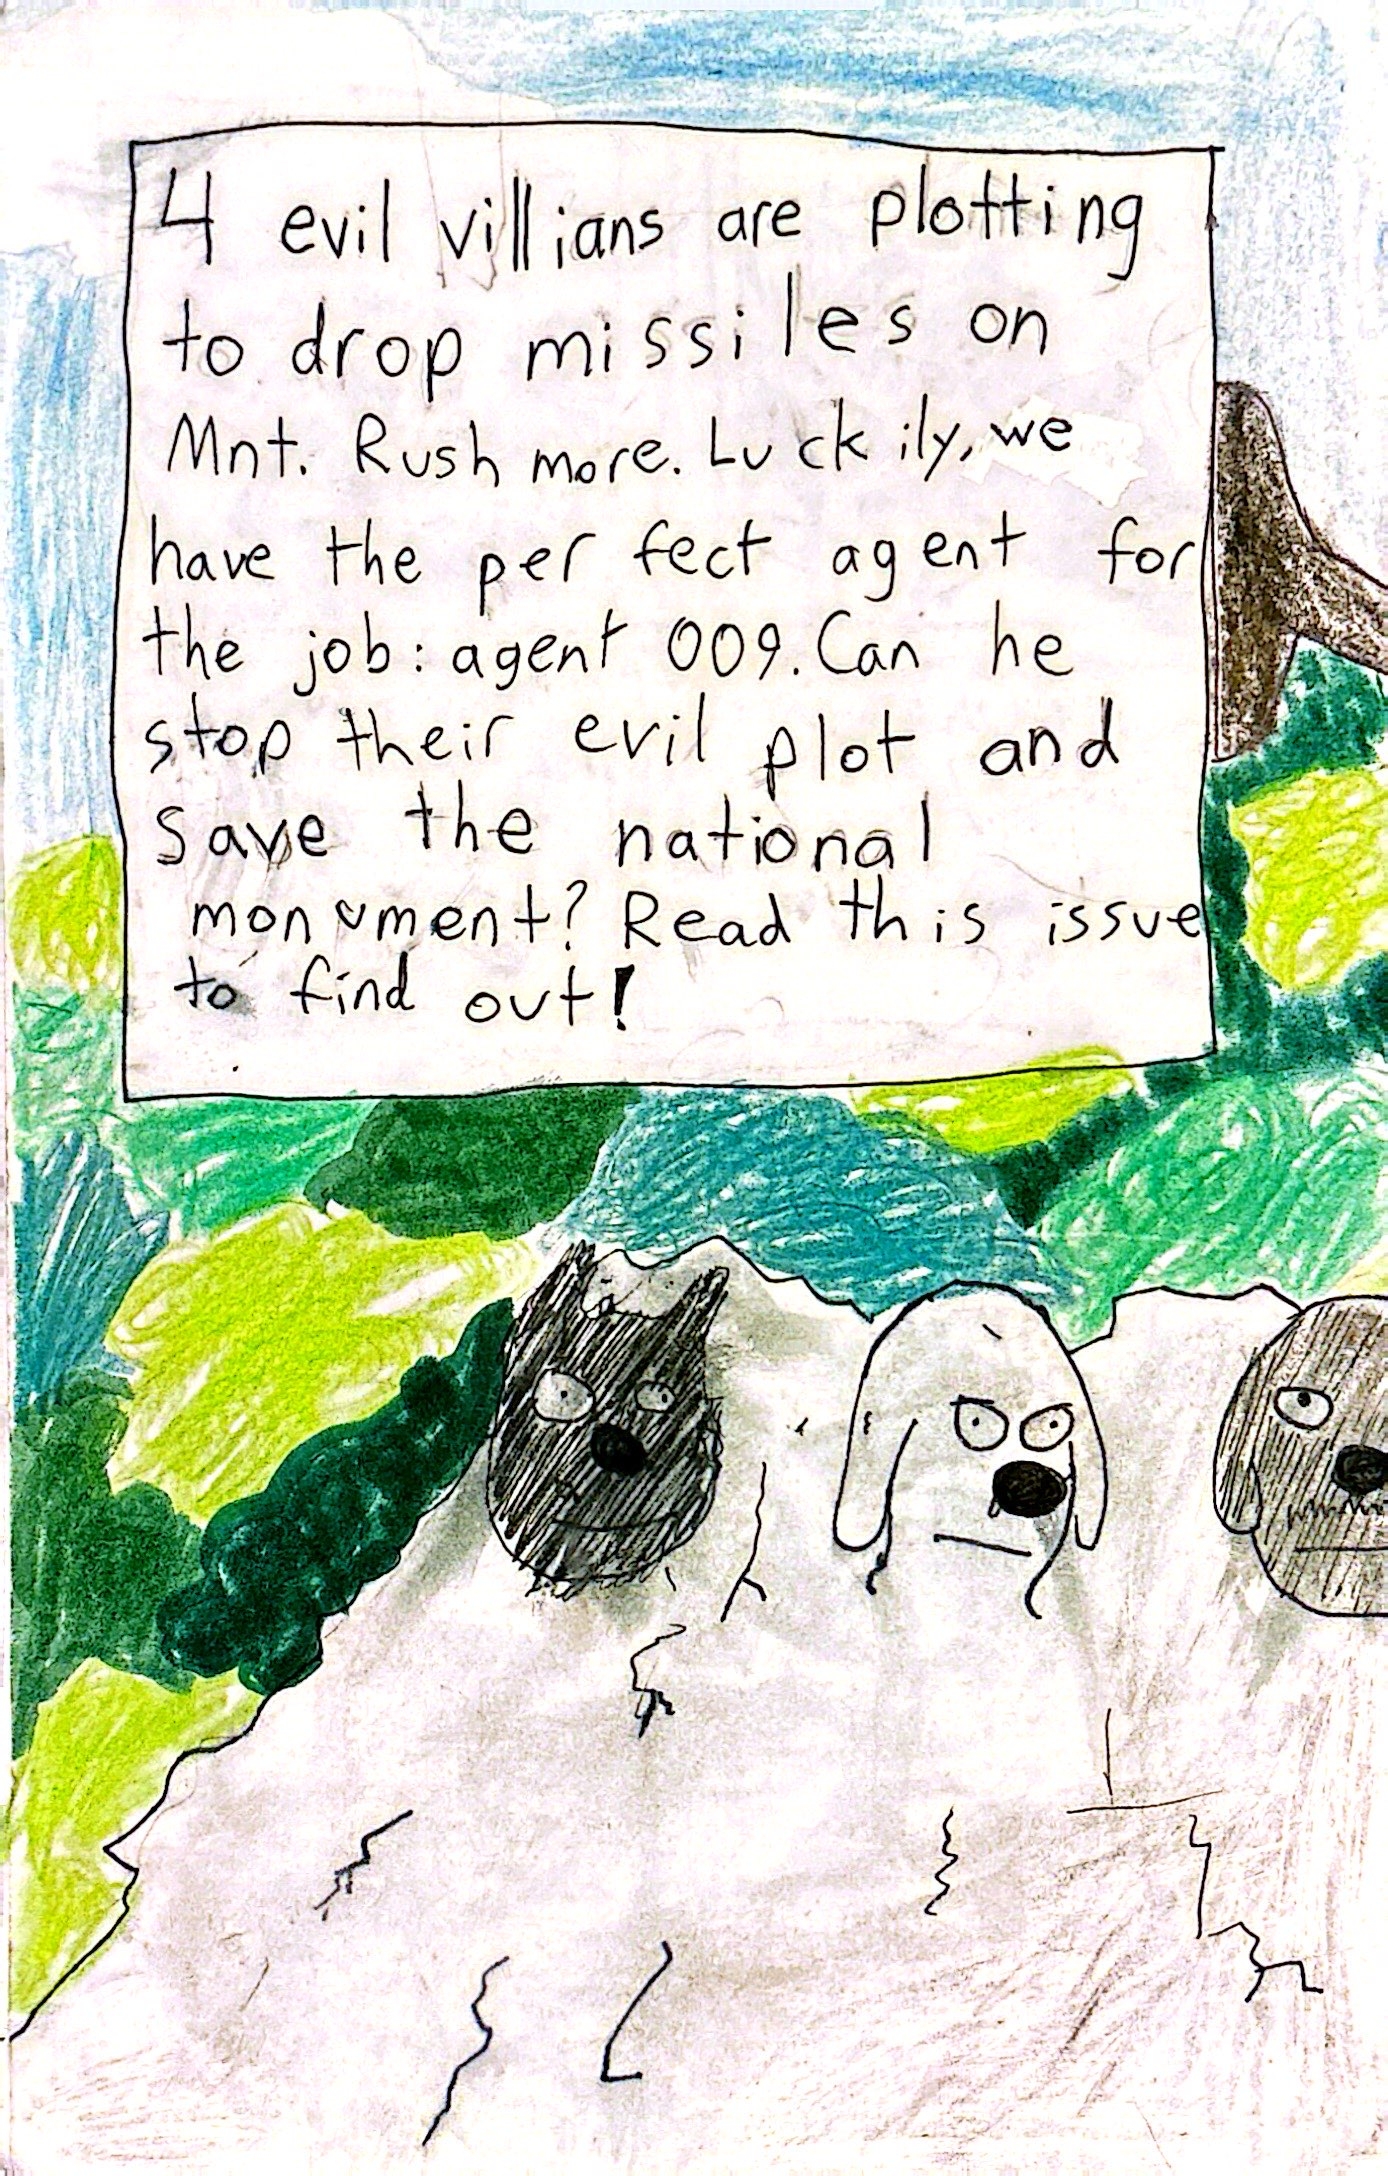 4 evil villians are plotting
to drop missiles on
Mnt. Rushmore. Luckily, we
have the perfect agent for
the job: agent 009. Can he
stop their evil plot and
save the national
monument? Read this issue
to find out!